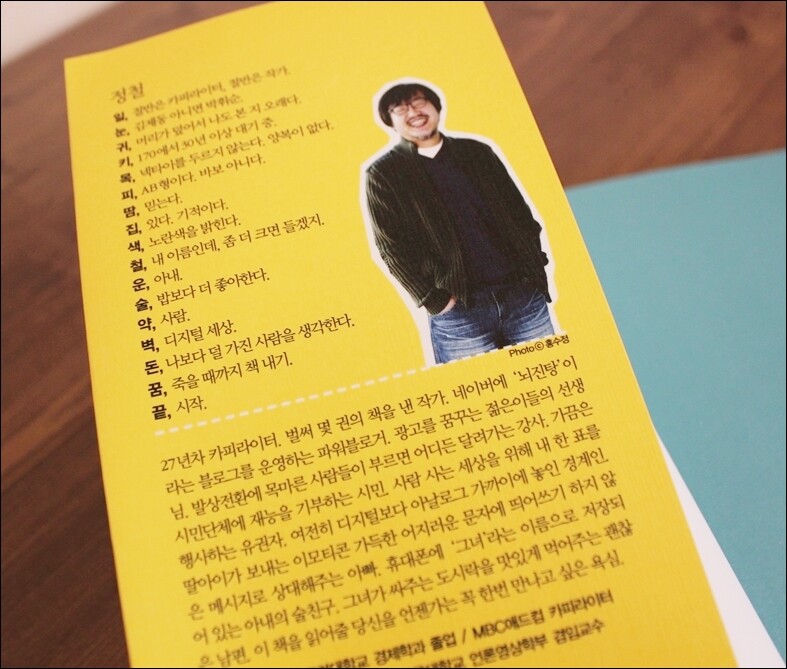 정철
일, 절반은 카피라이터, 절반은 작가.
눈, 김제동 아니면 박휘순.
귀, 머리가 덮어서 나도 본 지 오래다.
키, 170에서 30년 이상 대기 중.
목, 넥타이를 두르지 않는다. 양복이 없다.
피, AB형이다. 바보 아니다.
땀, 믿는다.
집, 있다. 기적이다.
색, 노란색을 밝힌다.
철, 내 이름인데, 좀 더 크면 들겠지.
운, 아내.
술, 밥보다 더 좋아한다.
약, 사람.
벽, 디지털 세상.
돈, 나보다 덜 가진 사람을 생각한다.
꿈, 죽을 때까지 책 내기.
끝, 시작.
Photo ⓒ 홍수정
27년차 카피라이터. 벌써 몇 권의 책을 낸 작가. 네이버에 ‘뇌진탕’이
라는 블로그를 운영하는 파워블로거. 광고를 꿈꾸는 젊은이들의 선생
님. 발상전환에 목마른 사람들이 부르면 어디든 달려가는 강사. 가끔은
시민단체에 재능을 기부하는 시민. 사람 사는 세상을 위해 내 한 표를
행사하는 유권자. 여전히 디지털보다 아날로그 가까이에 놓인 경계인.
딸아이가 보내는 이모티콘 가득한 어지러운 문자에 띄어쓰기 하지 않
은 메시지로 상대해주는 아빠. 휴대폰에 ‘그녀’라는 이름으로 저장되
어 있는 아내의 술친구. 그녀가 싸주는 도시락을 맛있게 먹어주는 괜찮
은 남편. 이 책을 읽어줄 당신을 언젠가는 꼭 한번 만나고 싶은 욕심.
경제학과 졸업 / MBC애드컴 카피라이터
언론영상학부 겸임교수